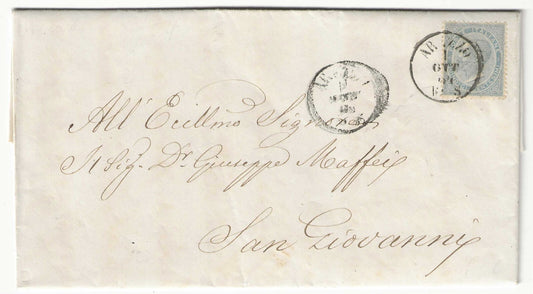 AREZZO
OTT
All' Ecillmo Signor
Il Sig. Dr. Giuseppe Maffei
San Giovanni